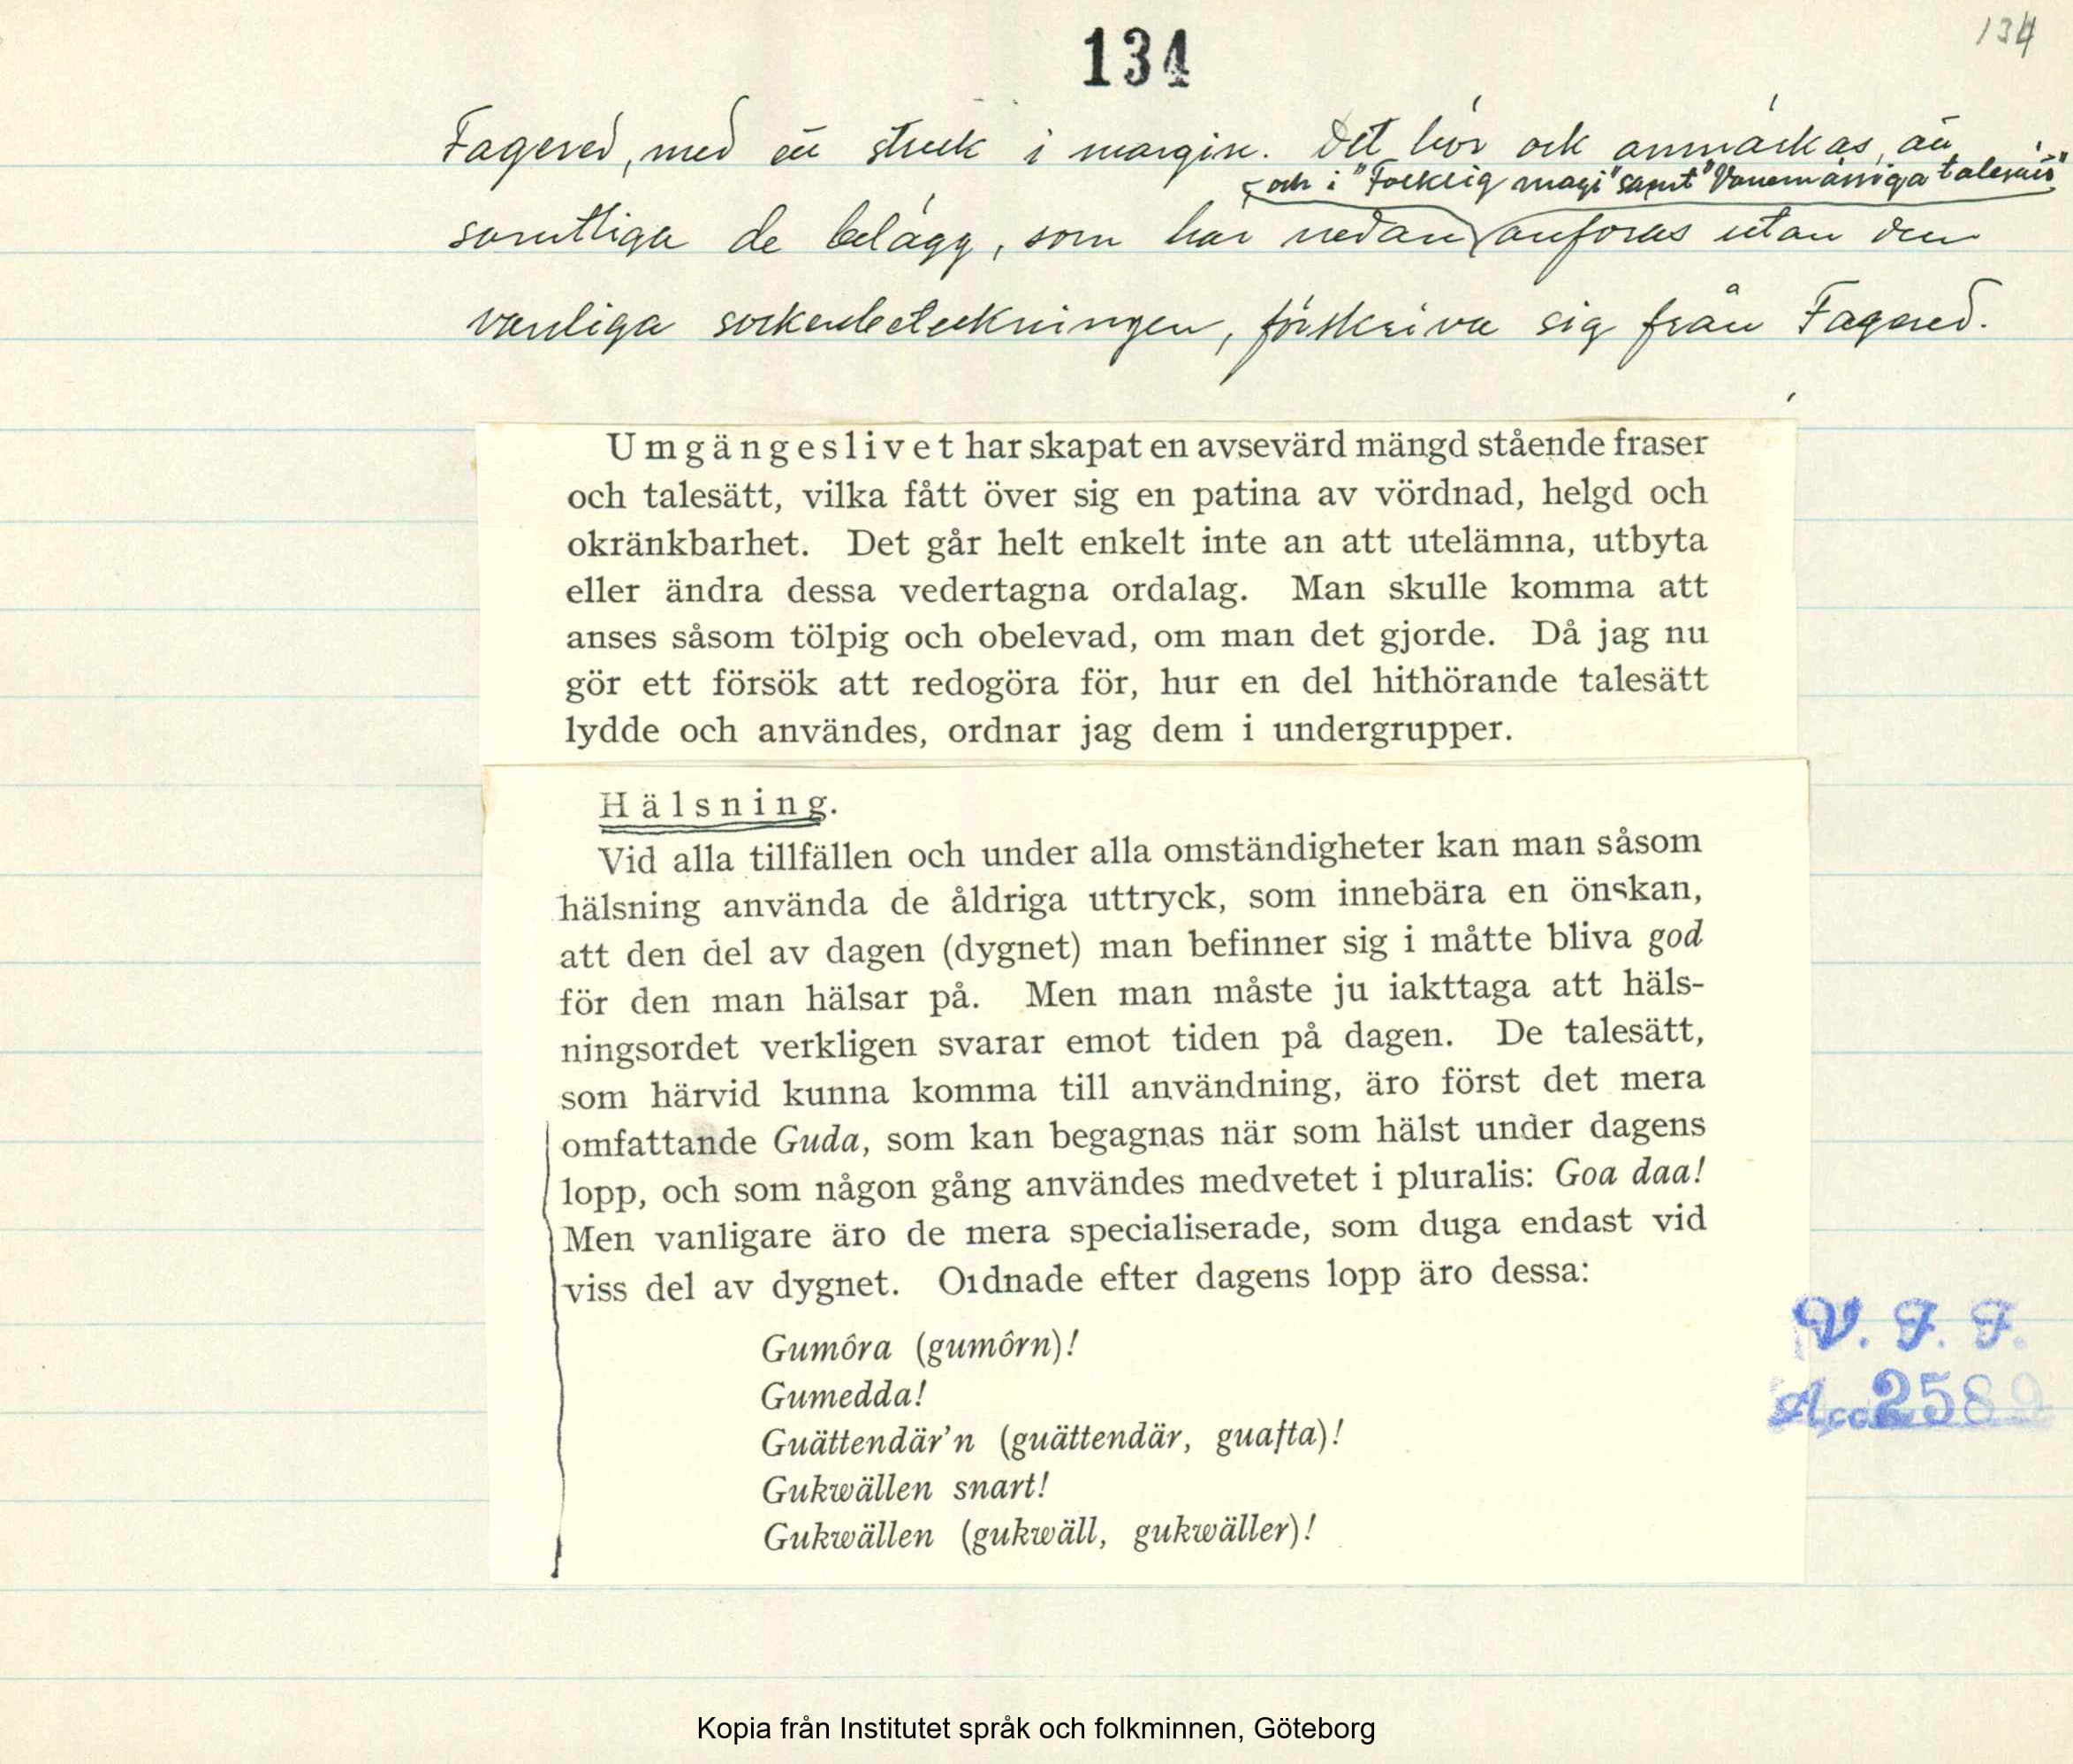 134
134
Fagered, med ett streck i margin. Det bör ock anmärkas, att
och i "Folklig magi" samt "Vanemässiga talesätt"
samtliga de belägg, som här nedan anföras utan den
vanliga sockenbeteckningen, förskriva sig från Fagered.
Umgängeslivet har skapat en avsevärd mängd stående fraser
och talesätt, vilka fått över sig en patina av vördnad, helgd och
okränkbarhet. Det går helt enkelt inte an att utelämna, utbyta
eller ändra dessa vedertagna ordalag. Man skulle komma att
anses såsom tölpig och obelevad, om man det gjorde. Då jag nu
gör ett försök att redogöra för, hur en del hithörande talesätt
lydde och användes, ordnar jag dem i undergrupper.
Hälsning.
Vid alla tillfällen och under alla omständigheter kan man såsom
hälsning använda de åldriga uttryck, som innebära en önskan,
att den del av dagen (dygnet) man befinner sig i måtte bliva god
för den man hälsar på. Men man måste ju iakttaga att häls-
ningsordet verkligen svarar emot tiden på dagen. De talesätt,
som härvid kunna komma till användning, äro först det mera
omfattande Guda, som kan begagnas när som hälst under dagens
lopp, och som någon gång användes medvetet i pluralis: Goa daa!
Men vanligare äro de mera specialiserade, som duga endast vid
viss del av dygnet. Ordnade efter dagens lopp äro dessa:
Gumôra (gumôrn)!
Gumedda!
Guättendär'n (guättendär, guafta)!
Gukwällen snart!
Gukwällen (gukwäll, gukwäller)!
V. F. F.
Acc 2589
Kopia från Institutet språk och folkminnen, Göteborg